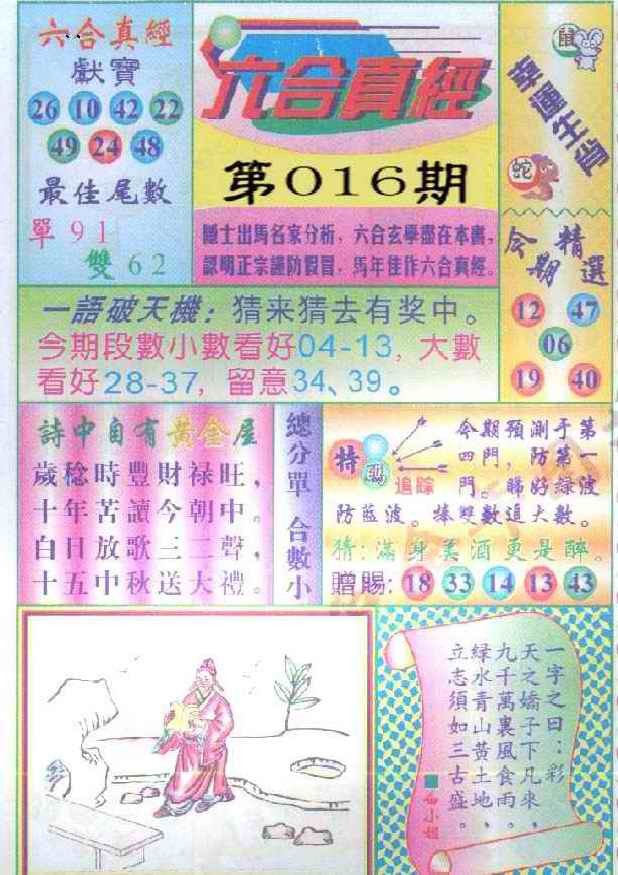 六合真經
獻寶
26 10 42 22
49 24 48
最佳尾數
單 91
雙 62
六合真經
第016期
隱士出馬名家分析，六合玄學盡在本書，
認明正宗謹防假冒，馬年佳作六合真經。
鼠
幸運生肖
蛇
今期精選
12 47
06
19 40
一語破天機：猜来猜去有奖中。
今期段數小數看好04-13，大數
看好28-37，留意34、39。
詩中自有黃金屋
歲稔時豐財禄旺，
十年苦讀今朝中。
白日放歌三二聲，
十五中秋送大禮。
總分單 合數小
特碼
追踪
今期預測于第
四門，防第一
門。睇好綠波
防藍波。捧雙數追大數。
猜：滿身美酒更是醉。
贈賜：18 33 14 13 43
一字之曰：彩
天之嬌子下凡來，
九千萬裏風食雨，
緑水青山黄土地，
立志須如三古盛。